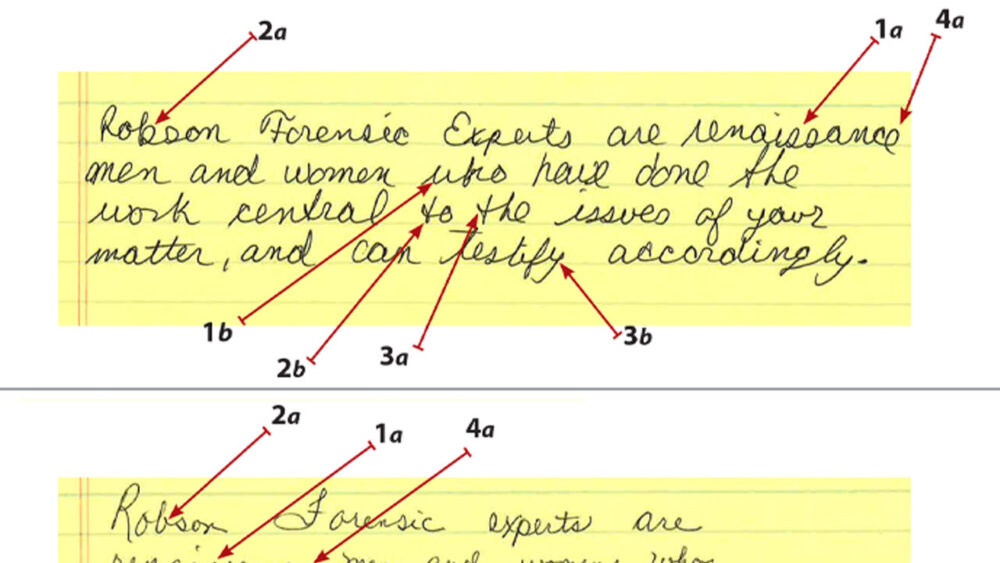 2a
1a
4a
Robson Forensic Experts are renaissance
men and women who have done the
work central to the issues of your
matter, and can testify accordingly.
1b
2b
3a
3b
2a
1a
4a
Robson Forensic experts are
men and women who